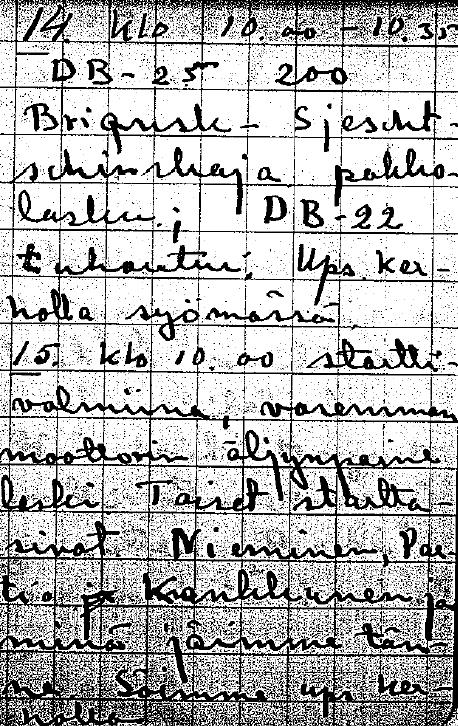 14. klo 10.00 - 10.35
DB-25 200
Briansk - Sjescht-
schinskaja pakko-
lasku; DB-22
tuhoutui. Ups. ker-
holla syömässä.
15. klo 10.00 startti-
valmiina, vasemman
moottorin öljynpaine
laski. Toiset startta-
sivat. Nieminen, Paa-
tio ja Kronkkunen ja
minä jäimme tän-
ne. Söimme ups. ker-
holla